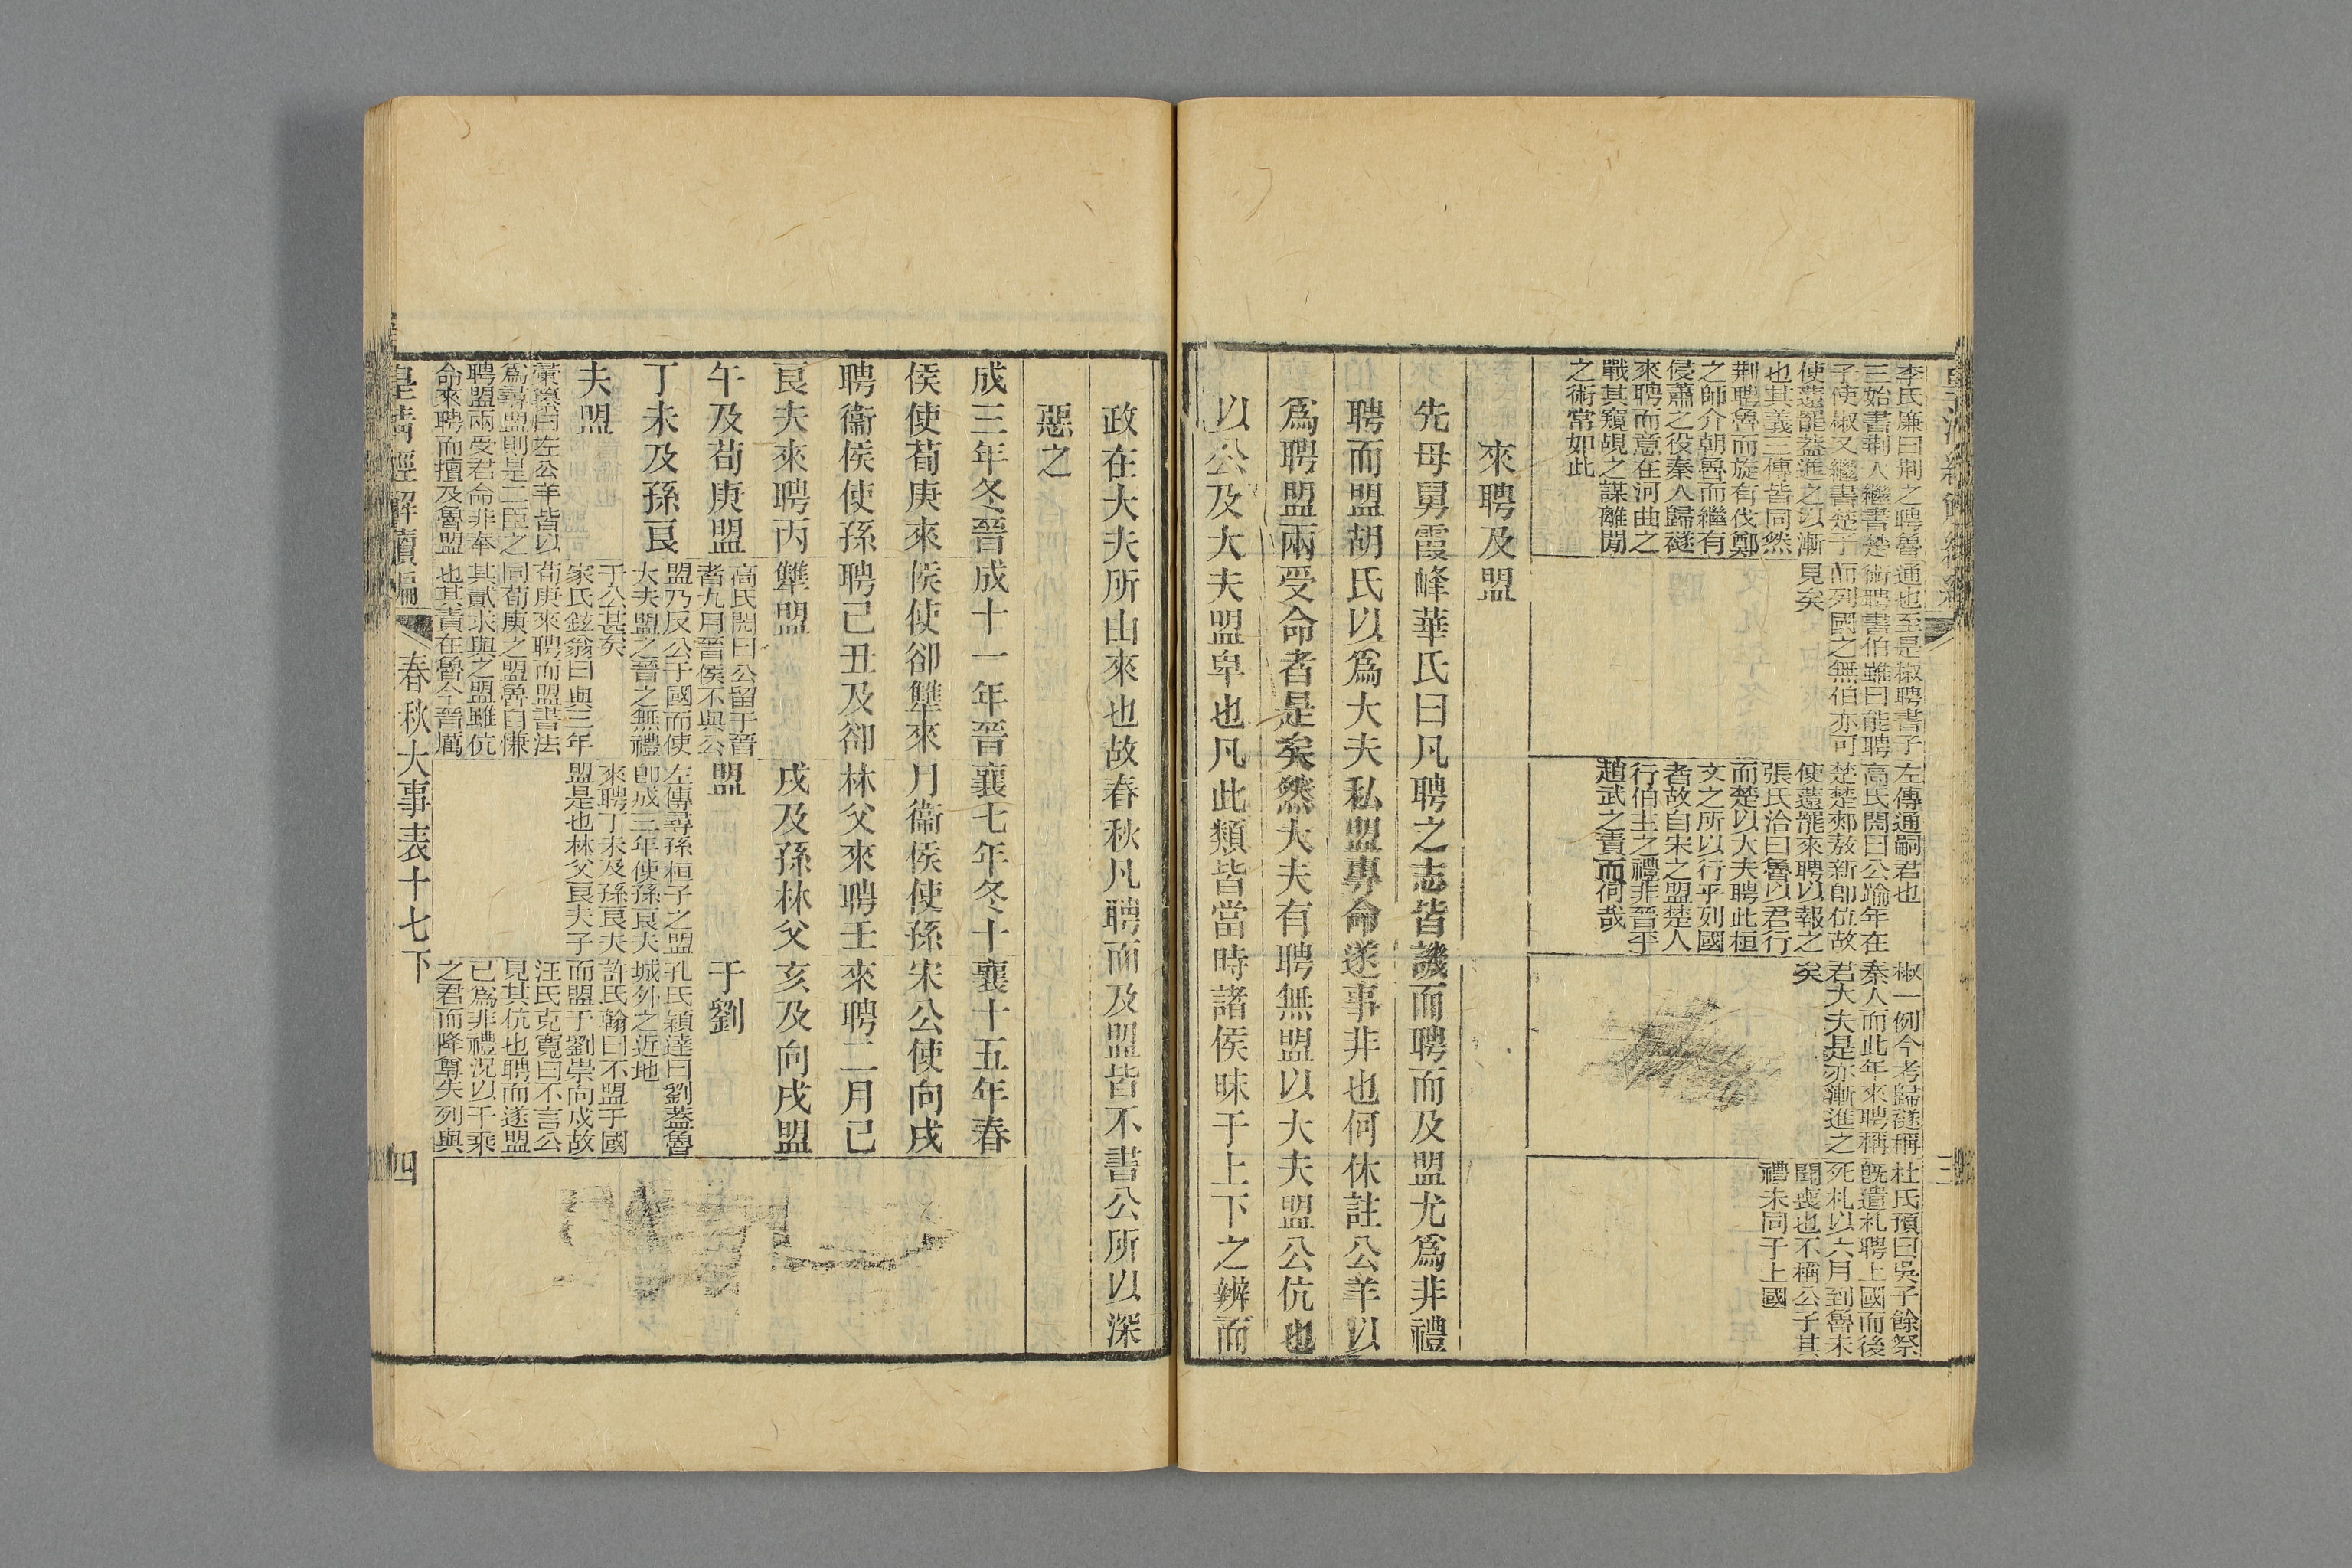 李氏廉曰荆之聘魯
三始書荆人繼書楚
子使椒又繼書楚子
使薳罷益進之以漸
也其義三傳皆同然
荆聘魯而旋有伐鄭
之師介朝魯而繼有
侵蕭之役秦人歸襚
來聘而意在河曲之
戰其窺覘之謀離閒
之術常如此
通也至是椒聘書子
術聘書伯雖曰能聘
而列國之無伯亦可
見矣
左傳通嗣君也
高氏閌曰公踰年在
楚楚郟敖新卽位故
使薳罷來聘以報之
張氏洽曰魯以君行
而楚以大夫聘此桓
文之所以行乎列國
者故自宋之盟楚人
行伯主之禮非晉平
趙武之責而何哉
椒一例今考歸襚稱
秦人而此年來聘稱
君大夫是亦漸進之
矣
杜氏預曰吳子餘祭
旣遣札聘上國而後
死札以六月到魯未
聞喪也不稱公子其
禮未同于上國
來聘及盟
先母舅霞峰華氏曰凡聘之志皆譏而聘而及盟尤爲非禮
聘而盟胡氏以爲大夫私盟專命遂事非也何休註公羊以
爲聘盟兩受命者是矣然大夫有聘無盟以大夫盟公伉也
以公及大夫盟卑也凡此類皆當時諸侯昧于上下之辨而
政在大夫所由來也故春秋凡聘而及盟皆不書公所以深
惡之
成三年冬晉
侯使荀庚來
聘衞侯使孫
良夫來聘丙
午及荀庚盟
丁未及孫良
夫盟
彙纂曰左公羊皆以
爲尋盟則是二臣之
聘盟兩受君命非奉
命來聘而擅及魯盟
成十一年晉
侯使卻犨來
聘己丑及卻
犨盟
高氏閌曰公留于晉
者九月晉侯不與公
盟乃反公于國而使
大夫盟之晉之無禮
于公甚矣
家氏鉉翁曰與三年
荀庚來聘而盟書法
同荀庚之盟魯自慊
其貳求與之盟雖伉
也其責在魯今晉厲
襄七年冬十
月衞侯使孫
林父來聘壬
戌及孫林父
盟
左傳尋孫桓子之盟
卽成三年使孫良夫
來聘丁未及孫良夫
盟是也林父良夫子
襄十五年春
宋公使向戌
來聘二月己
亥及向戌盟
于劉
孔氏穎達曰劉蓋魯
城外之近地
許氏翰曰不盟于國
而盟于劉崇向戌故
汪氏克寬曰不言公
見其伉也聘而遂盟
已爲非禮況以千乘
之君而降尊失列與
皇淸經解續編
春秋大事表十七下
四